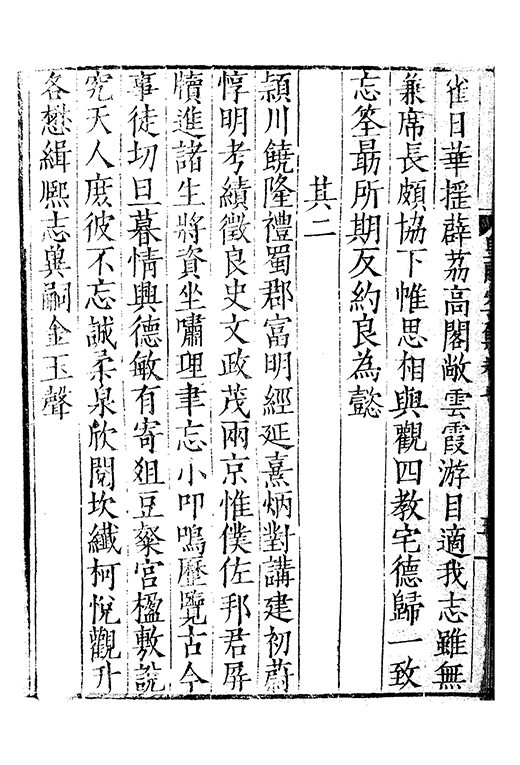 雀日華揺薜荔高閣敞雲霞游目適我志雖無
兼席長頗協下帷思相與觀四教宅德歸一致
忘筌最所期友約良為懿
其二
潁川饒隆禮蜀郡富明經延熹炳對講建初蔚
惇明考績徵良史文政茂兩京惟僕佐邦君屏
牘進諸生將資坐嘯理聿忘小叩鳴歷覽古今
事徒切旦暮情興德敏有寄俎豆粲宮楹敷說
究天人庶彼不忘誠柔泉欣閱坎纖柯悅觀升
各懋緝熈志與嗣金玉聲